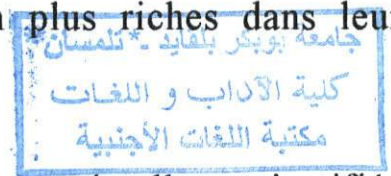 plus riches dans leu
جامعة بوبكر بلقايد - تلمسان
كلية الآداب و اللغات
مكتبة اللغات الأجنبية